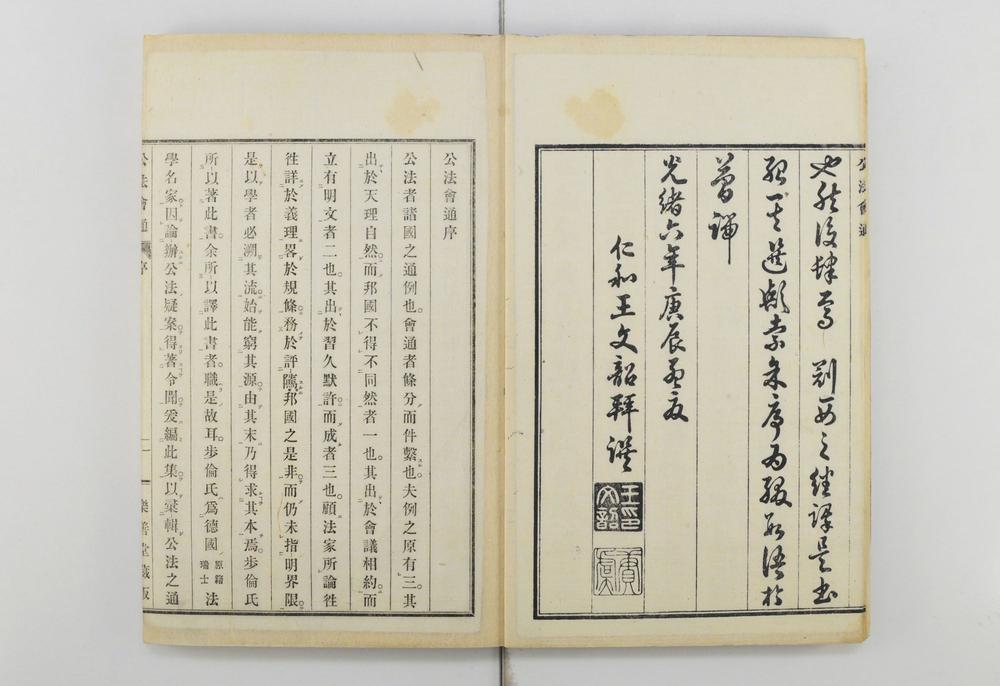 公法會通
也然後肆焉 冠西之繙譯是書
殆其選歟索余序為綴數語於
簡端
光緒六年庚辰孟夏
仁和王文韶拜譔
王文韶印
賡虞
公法會通序
公法者諸國之通例也。會通者條分而件繫也。夫例之原有三。其
出於天理自然。而邦國不得不同然者一也。其出於會議相約。而
立有明文者二也。其出於習久默許而成者三也。顧法家所論徃
徃詳於義理。畧於規條。務於評隲。邦國之是非。而仍未指明界限。
是以學者必溯其流。始能窮其源。由其末乃得求其本焉。步倫氏
所以著此書。余所以譯此書者。職是故耳。步倫氏爲德國原籍瑞士法
學名家。因論辦公法疑案。得著令聞。爰編此集。以彚輯公法之通
公法會通 序 一 樂善堂藏版